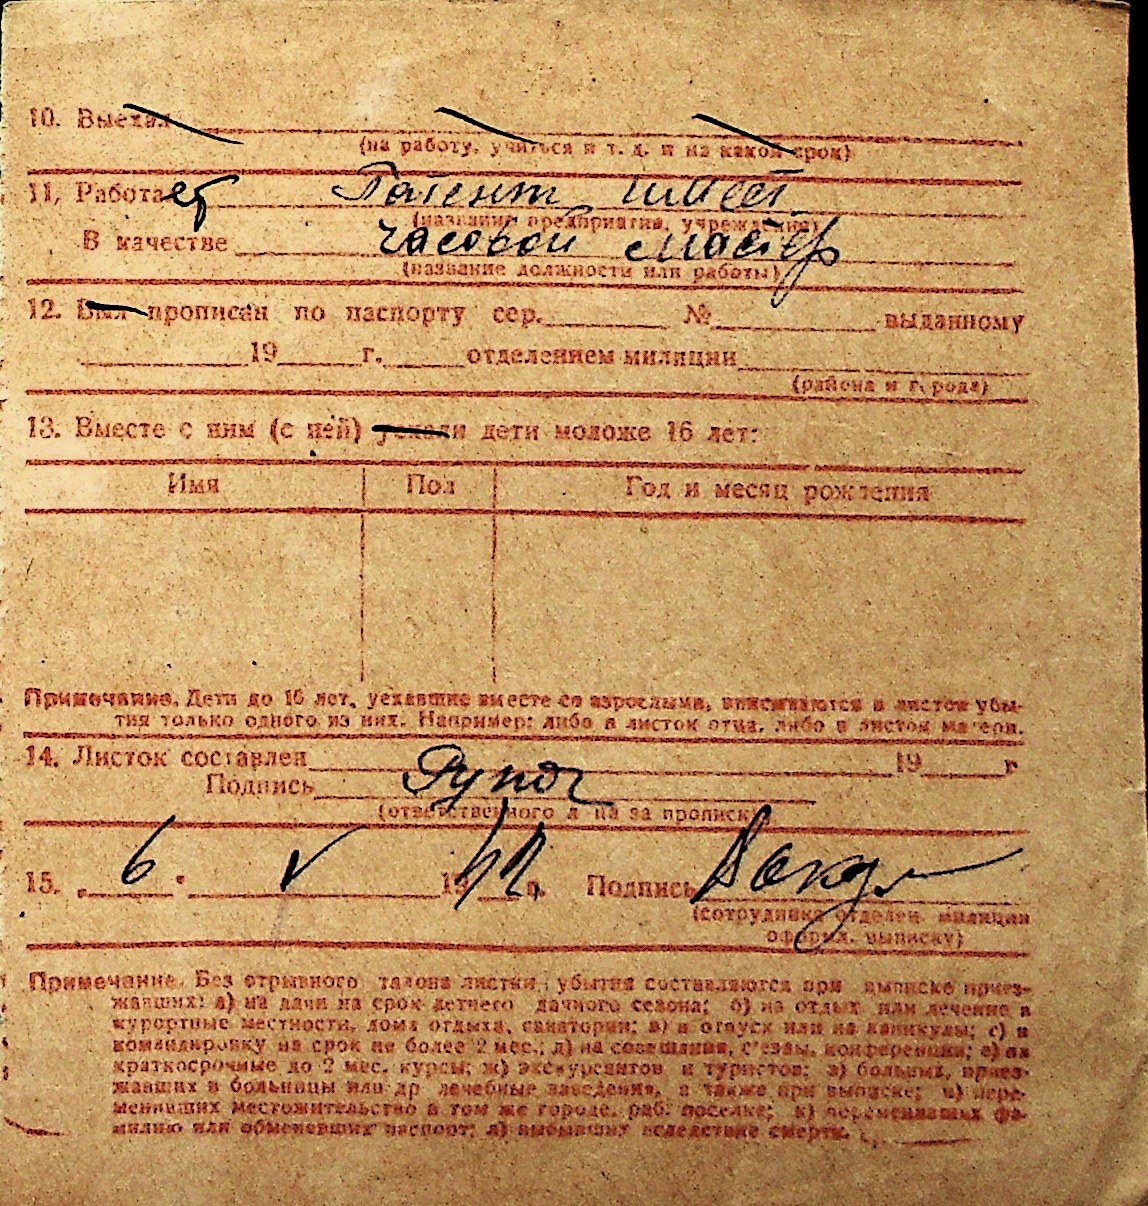 10. Выехал
(на работу, учиться и т. д. и на какой срок)
11, Работает Патент
(название предприятия, учреждения)
В качестве часовой мастер
(название должности или работы)
12. Был прописан по паспорту сер. № выданному
19 г. отделением милиции
(района и города)
13. Вместе с ним (с ней) уехали дети моложе 16 лет:
Имя Пол Год и месяц рождения
Примечание. Дети до 16 лет, уехавшие вместе со взрослыми, вписываются в листок убы-
тия только одного из них. Например: либо в листок отца, либо в листок матери.
14. Листок составлен 19 г
Подпись
(ответственного лица за прописку)
15. „ 6 " V 19 42 г. Подпись
(сотрудника отделен. милиции
оформ. выписку)
Примечание. Без отрывного талона листки убытия составляются при выписке приез-
жавших: а) на дачи на срок летнего дачного сезона; б) на отдых или лечение в
курортные местности, дома отдыха, санатории; в) в отпуск или на каникулы; с) в
командировку на срок не более 2 мес.; д) на совещания, съезды, конференции; е) на
краткосрочные до 2 мес. курсы; ж) экскурсантов и туристов; з) больных, приез-
жавших в больницы или др лечебные заведения, а также при выписке; и) пере-
менивших местожительство в том же городе, раб. поселке; к) переменивших фа-
милию или обменевших паспорт; л) выбывших вследствие смерти.